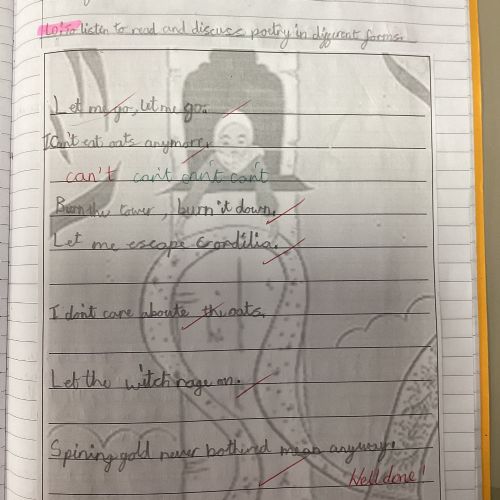 LO: To listen to read and discuss poetry in different forms.
Let me go, let me go.
I Can't eat oats anymore,
can't can't can't can't
Burn the tower, burn it down.
Let me escape Crondilia.
I don't care aboute the oats.
Let the witch rage on.
Spining gold never bothired mean anyway.
Well done!